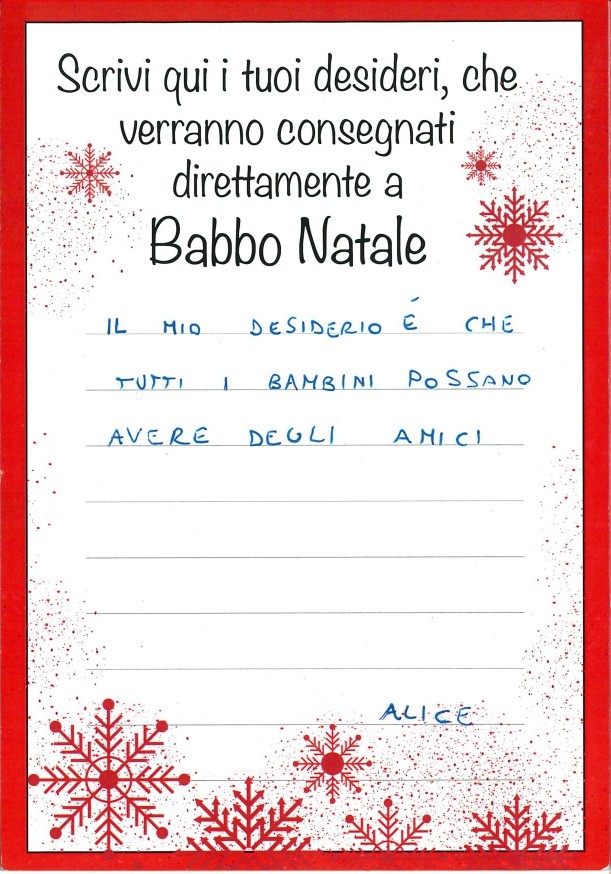 Scrivi qui i tuoi desideri, che
verranno consegnati
direttamente a
Babbo Natale
IL MIO DESIDERIO É CHE
TUTTI I BAMBINI POSSANO
AVERE DEGLI AMICI
ALICE